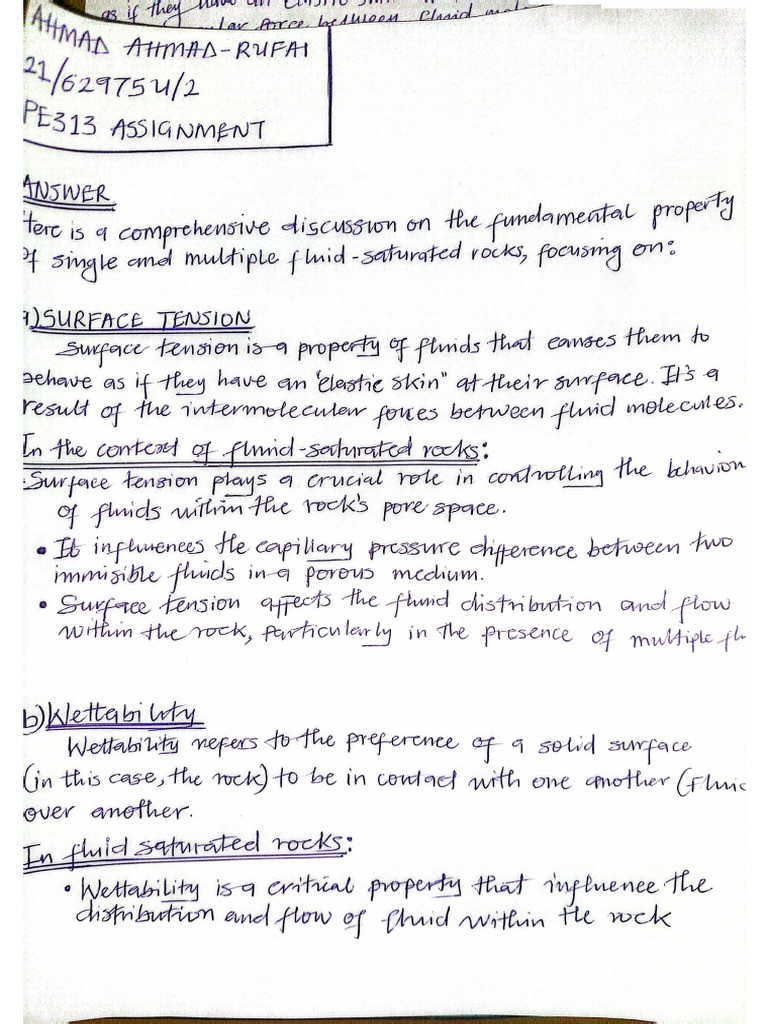 as if they have an elastic skin
lar force between fluid mol
AHMAD AHMAD-RUFAI
21/62975U/2
PE313 ASSIGNMENT
ANSWER
Here is a comprehensive discussion on the fundamental property
of single and multiple fluid-saturated rocks, focusing on:
a) SURFACE TENSION
Surface tension is a property of fluids that causes them to
behave as if they have an "elastic skin" at their surface. It's a
result of the intermolecular forces between fluid molecules.
In the context of fluid-saturated rocks:
· Surface tension plays a crucial role in controlling the behavior
of fluids within the rock's pore space.
• It influences the capillary pressure difference between two
immisible fluids in a porous medium.
• Surface tension affects the fluid distribution and flow
within the rock, particularly in the presence of multiple fl
b) Wettability
Wettability refers to the preference of a solid surface
(in this case, the rock) to be in contact with one another (Fluid
over another.
In fluid saturated rocks:
• Wettability is a critical property that influence the
distribution and flow of fluid within the rock